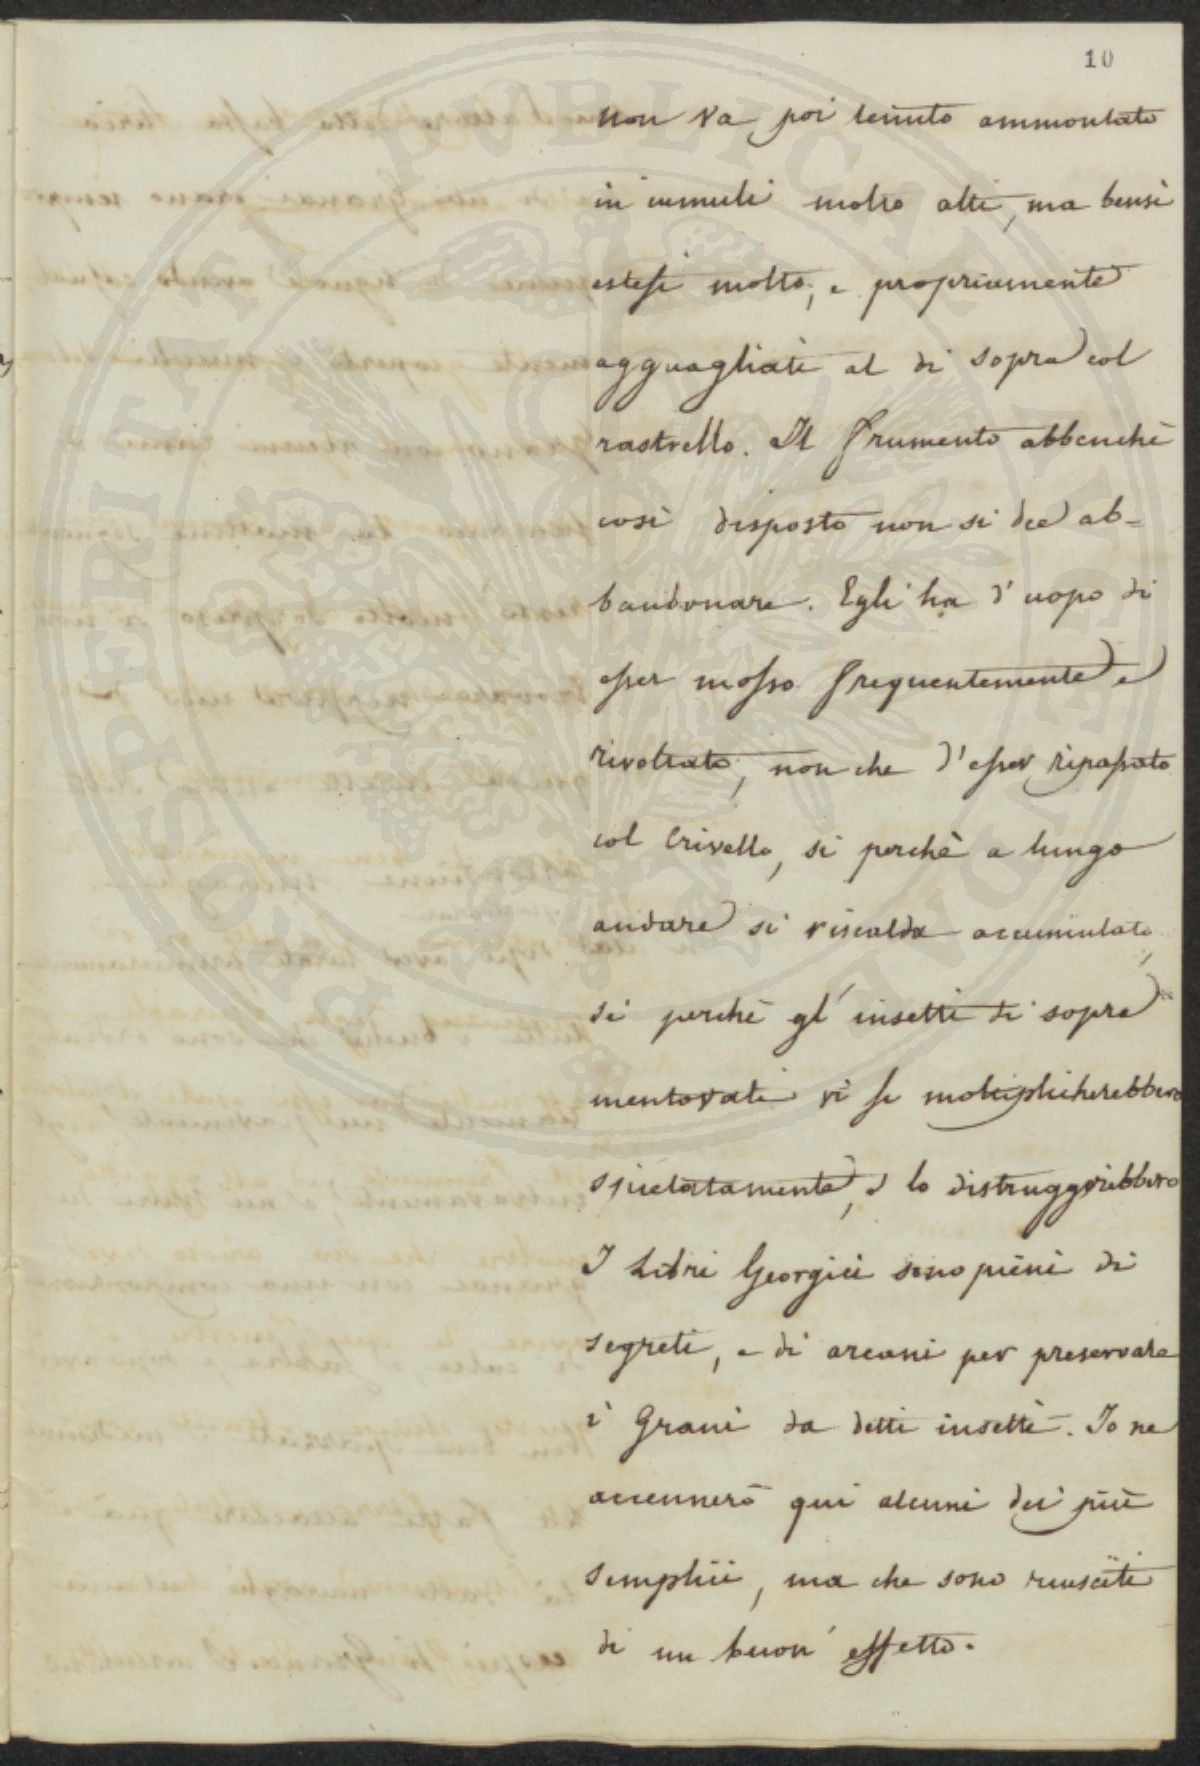 10
non va poi tenuto ammontato
in cumuli molto alti, ma bensì
estesi molto, e propriamente
agguagliati al di sopra col
rastrello. Il frumento abbenchè
così disposto non si dee ab=
bandonare. Egli ha d'uopo di
esser mosso frequentemente e
rivoltato, non che d'esser ripassato
col Crivello, si perchè a lungo
andare si riscalda accumulato,
si perchè gl'insetti di sopra
mentovati vi si moltiplicherebbero
spietatamente, e lo distruggerebbero
I Libri Georgici sono pieni di
segreti, e di arcani per preservare
i Grani da detti insetti. Io ne
accennerò qui alcuni dei più
semplici, ma che sono riusciti
di un buon' effetto.
PROSPERITATI PVBLICAE AVGENDAE